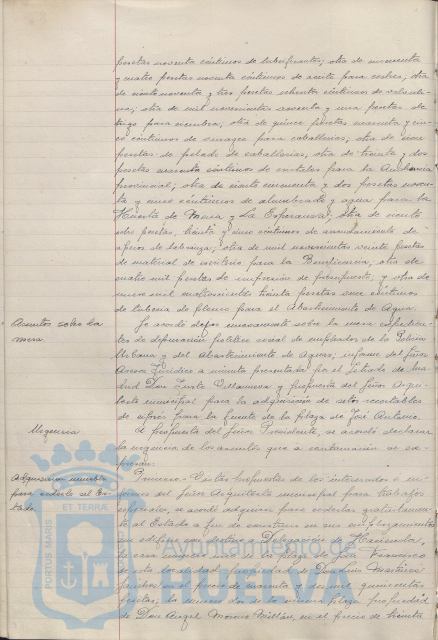 pesetas noventa céntimos de lubrificantes; otra de cincuenta
y cuatro pesetas noventa céntimos de aceite para coches; otra
de ciento noventa y tres pesetas ochenta céntimos de
otra de mil novecientas noventa y una pesetas de
trigo para siembra; otra de quince pesetas cuarenta y cin-
co céntimos de para caballerías; otra de cien
pesetas de pelado de caballerías; otra de treinta y dos
pesetas cuarenta céntimos de cristales para la Audiencia
provincial; otra de ciento cincuenta y dos pesetas noven-
ta y cinco céntimos de alumbrado y agua para la
Huerta de Mena y La Esperanza; otra de ciento
dos pesetas, treinta y cinco céntimos de arrendamiento de
aperos de labranza; otra de mil novecientas veinte pesetas
de material de escritorio para la Beneficencia; otra de
cuatro mil pesetas de impresión de presupuesto; y otra de
once mil ochocientas treinta pesetas once céntimos
de tubería de plomo para el Abastecimiento de Agua.
Asuntos sobre la
mesa
Se acordó dejar nuevamente sobre la mesa expedien-
tes de depuración político social de empleados de la Policía
Urbana y del Abastecimiento de Aguas, informe del Señor
Asesor Jurídico a minuta presentada por el Letrado de Ma-
drid Don Justo Villanueva y propuesta del Señor Arqui-
tecto municipal para la adquisición de setos recortables
de ciprés para la fuente de la plaza de José Antonio.
Urgencia
A propuesta del Señor Presidente, se acordó declarar
la urgencia de los asuntos que a continuación se ex-
presan:
Adquisición inmuebles
para cederlo al Es-
tado
Primero.- Vistas propuestas de los interesados e in-
formes del Señor Arquitecto municipal para trabajos
se acordó adquirir para cederlas gratuitamen-
te al Estado a fin de construir en sus emplazamientos
un edificio con destino a Delegación de Hacienda,
la casa
de esta localidad, propiedad de Don Luis Martínez
en el precio de cuarenta y mil quinientas
pesetas; la número dos de la misma plaza, propiedad
de Don Angel Moreno Millán, en el precio de treinta
PORTUS MARIS ET TERRAE
Ayuntamiento de
HUELVA